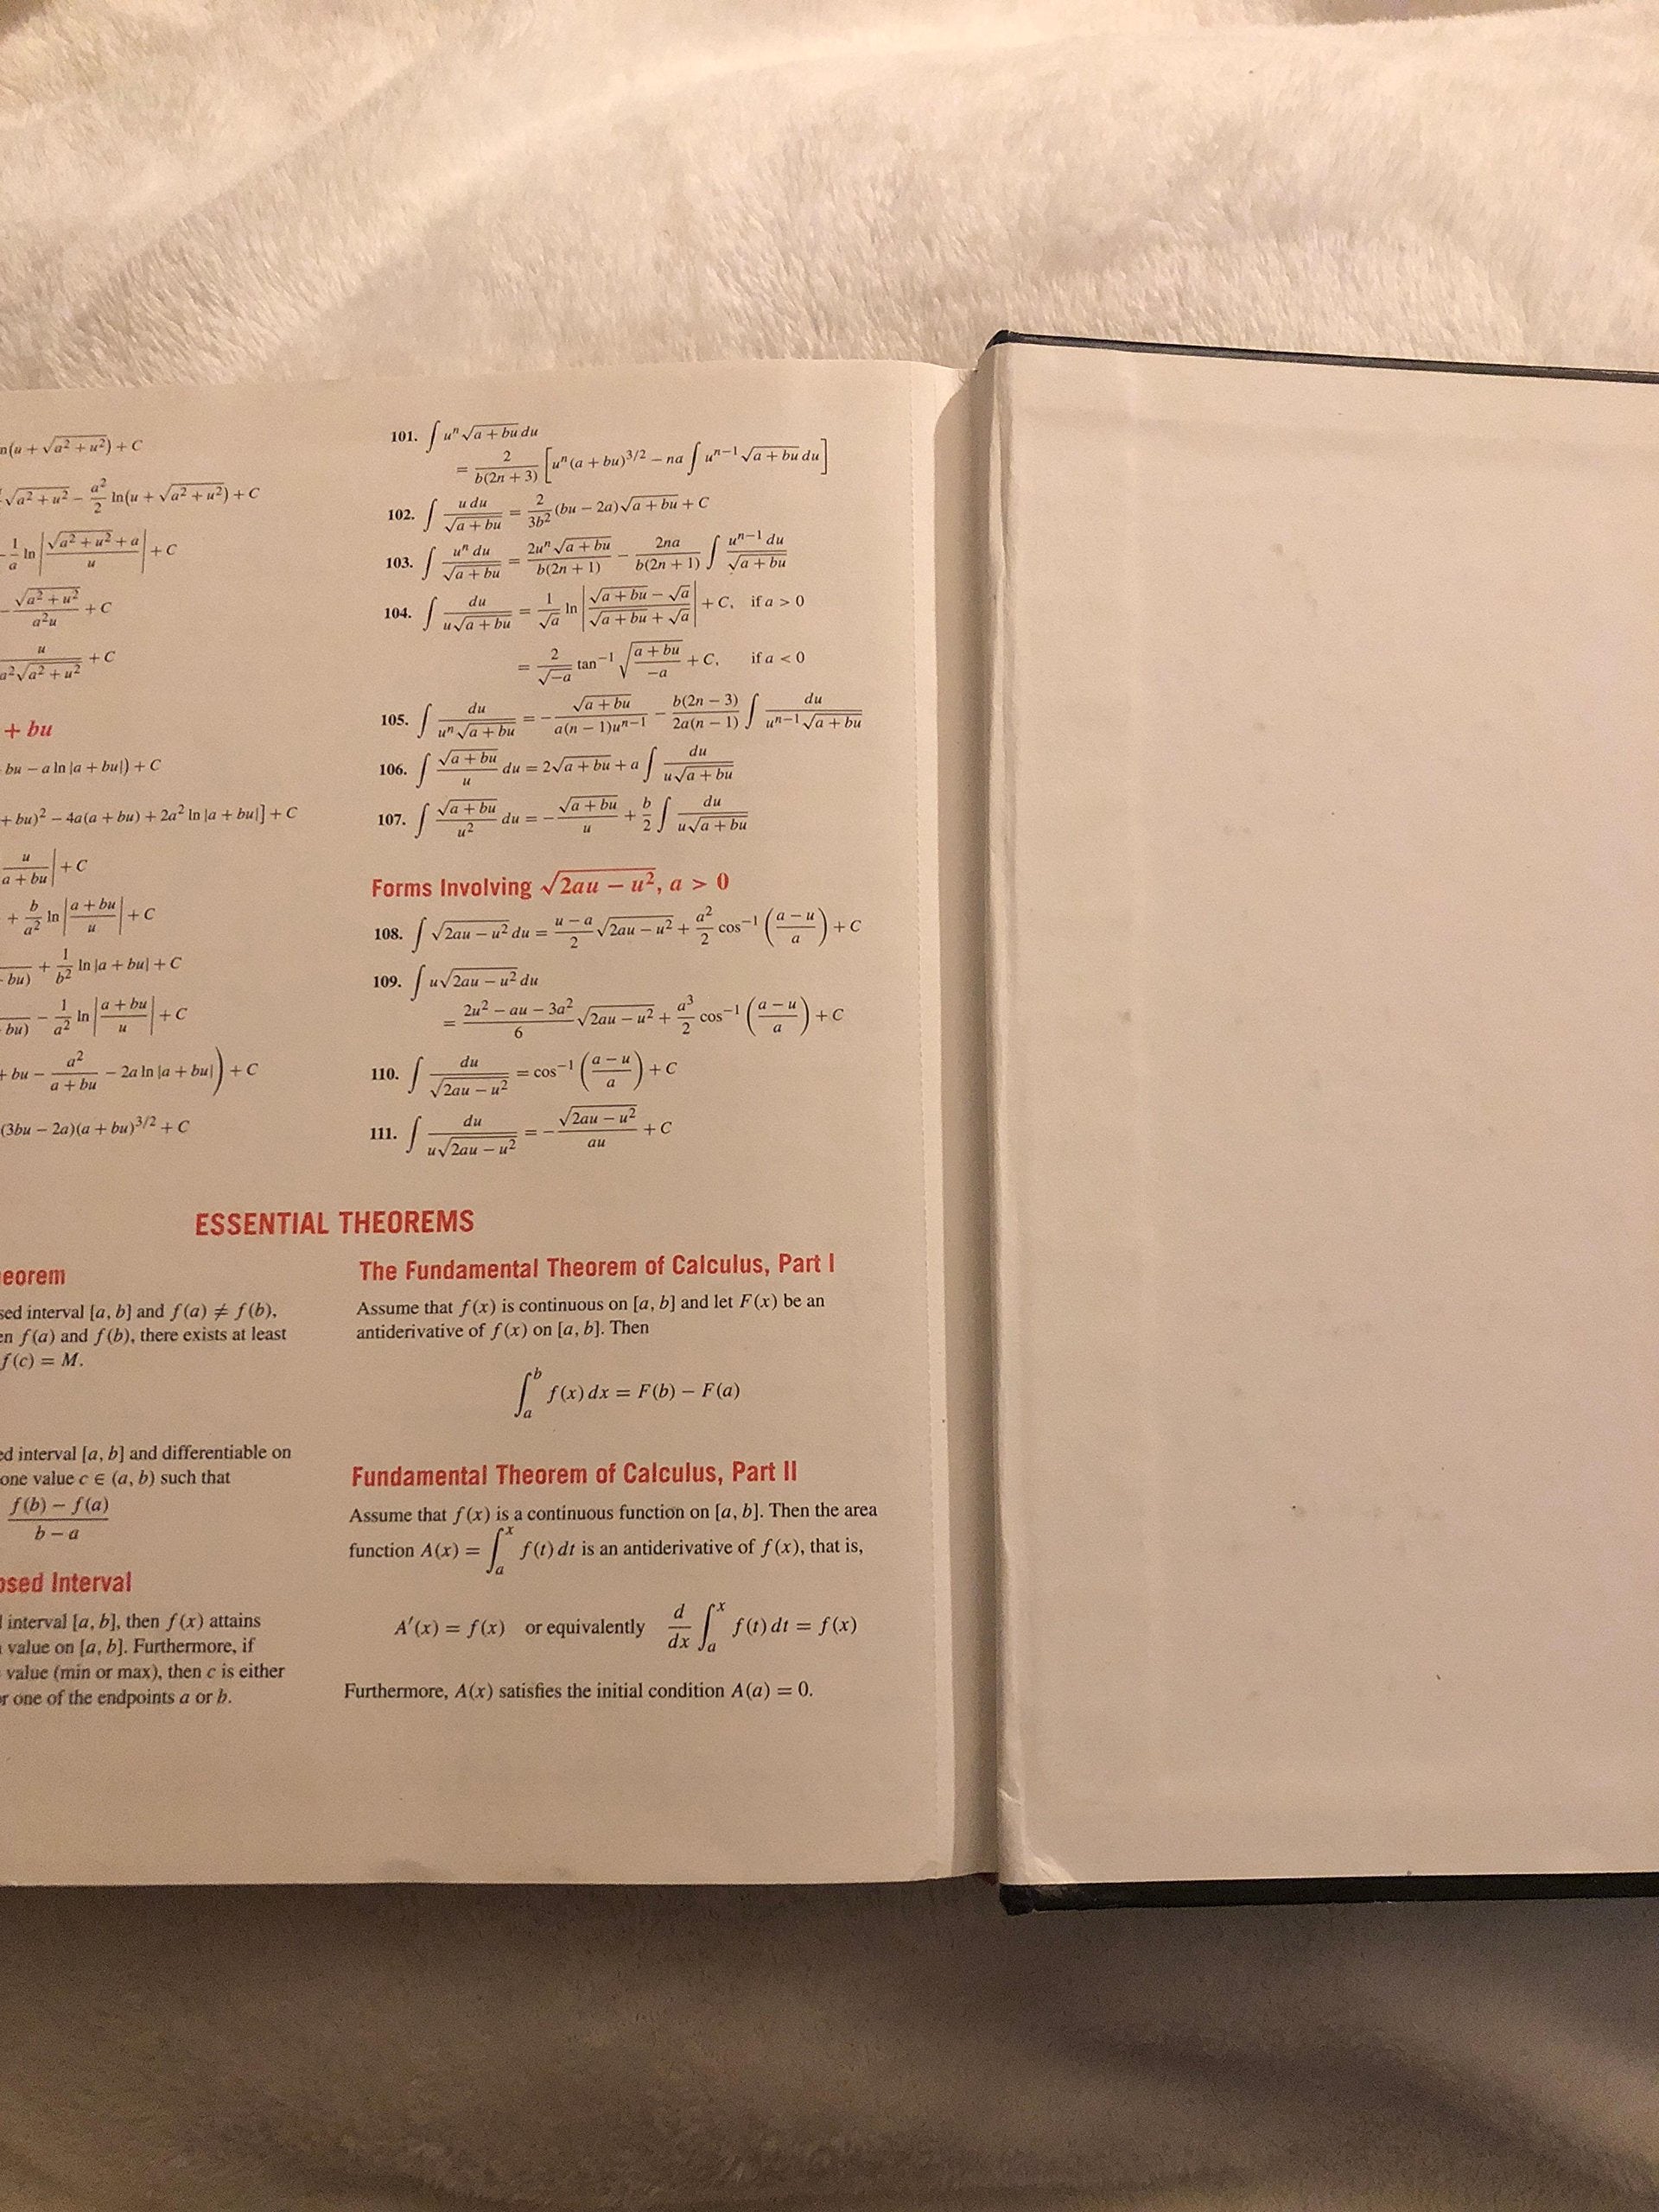 n(u + √(a² + u²)) + C
√(a² + u²) − a²/2 ln(u + √(a² + u²)) + C
−1/a ln |(√(a² + u²) + a)/u| + C
−√(a² + u²)/(a²u) + C
u/(a²√(a² + u²)) + C
+ bu
bu − a ln |a + bu|) + C
+ bu)² − 4a(a + bu) + 2a² ln |a + bu|] + C
u/(a + bu)| + C
+ b/a² ln |(a + bu)/u| + C
bu) + 1/b² ln |a + bu| + C
bu) − 1/a² ln |(a + bu)/u| + C
+ bu − a²/(a + bu) − 2a ln |a + bu|) + C
(3bu − 2a)(a + bu)^{3/2} + C
101. ∫ uⁿ√(a + bu) du
= 2/(b(2n + 3)) [uⁿ(a + bu)^{3/2} − na ∫ uⁿ⁻¹√(a + bu) du]
102. ∫ u du/√(a + bu) = 2/(3b²) (bu − 2a)√(a + bu) + C
103. ∫ uⁿ du/√(a + bu) = 2uⁿ√(a + bu)/(b(2n + 1)) − 2na/(b(2n + 1)) ∫ uⁿ⁻¹ du/√(a + bu)
104. ∫ du/(u√(a + bu)) = 1/√a ln |(√(a + bu) − √a)/(√(a + bu) + √a)| + C, if a > 0
= 2/√(−a) tan⁻¹ √((a + bu)/(−a)) + C, if a < 0
105. ∫ du/(uⁿ√(a + bu)) = −√(a + bu)/(a(n − 1)uⁿ⁻¹) − b(2n − 3)/(2a(n − 1)) ∫ du/(uⁿ⁻¹√(a + bu))
106. ∫ √(a + bu)/u du = 2√(a + bu) + a ∫ du/(u√(a + bu))
107. ∫ √(a + bu)/u² du = −√(a + bu)/u + b/2 ∫ du/(u√(a + bu))
Forms Involving √(2au − u²), a > 0
108. ∫ √(2au − u²) du = (u − a)/2 √(2au − u²) + a²/2 cos⁻¹ ((a − u)/a) + C
109. ∫ u√(2au − u²) du
= (2u² − au − 3a²)/6 √(2au − u²) + a³/2 cos⁻¹ ((a − u)/a) + C
110. ∫ du/√(2au − u²) = cos⁻¹ ((a − u)/a) + C
111. ∫ du/(u√(2au − u²)) = −√(2au − u²)/(au) + C
ESSENTIAL THEOREMS
eorem
sed interval [a, b] and f(a) ≠ f(b),
en f(a) and f(b), there exists at least
f(c) = M.
ed interval [a, b] and differentiable on
one value c ∈ (a, b) such that
(f(b) − f(a))/(b − a)
osed Interval
interval [a, b], then f(x) attains
value on [a, b]. Furthermore, if
value (min or max), then c is either
or one of the endpoints a or b.
The Fundamental Theorem of Calculus, Part I
Assume that f(x) is continuous on [a, b] and let F(x) be an
antiderivative of f(x) on [a, b]. Then
∫ₐᵇ f(x) dx = F(b) − F(a)
Fundamental Theorem of Calculus, Part II
Assume that f(x) is a continuous function on [a, b]. Then the area
function A(x) = ∫ₐˣ f(t) dt is an antiderivative of f(x), that is,
A′(x) = f(x) or equivalently d/dx ∫ₐˣ f(t) dt = f(x)
Furthermore, A(x) satisfies the initial condition A(a) = 0.